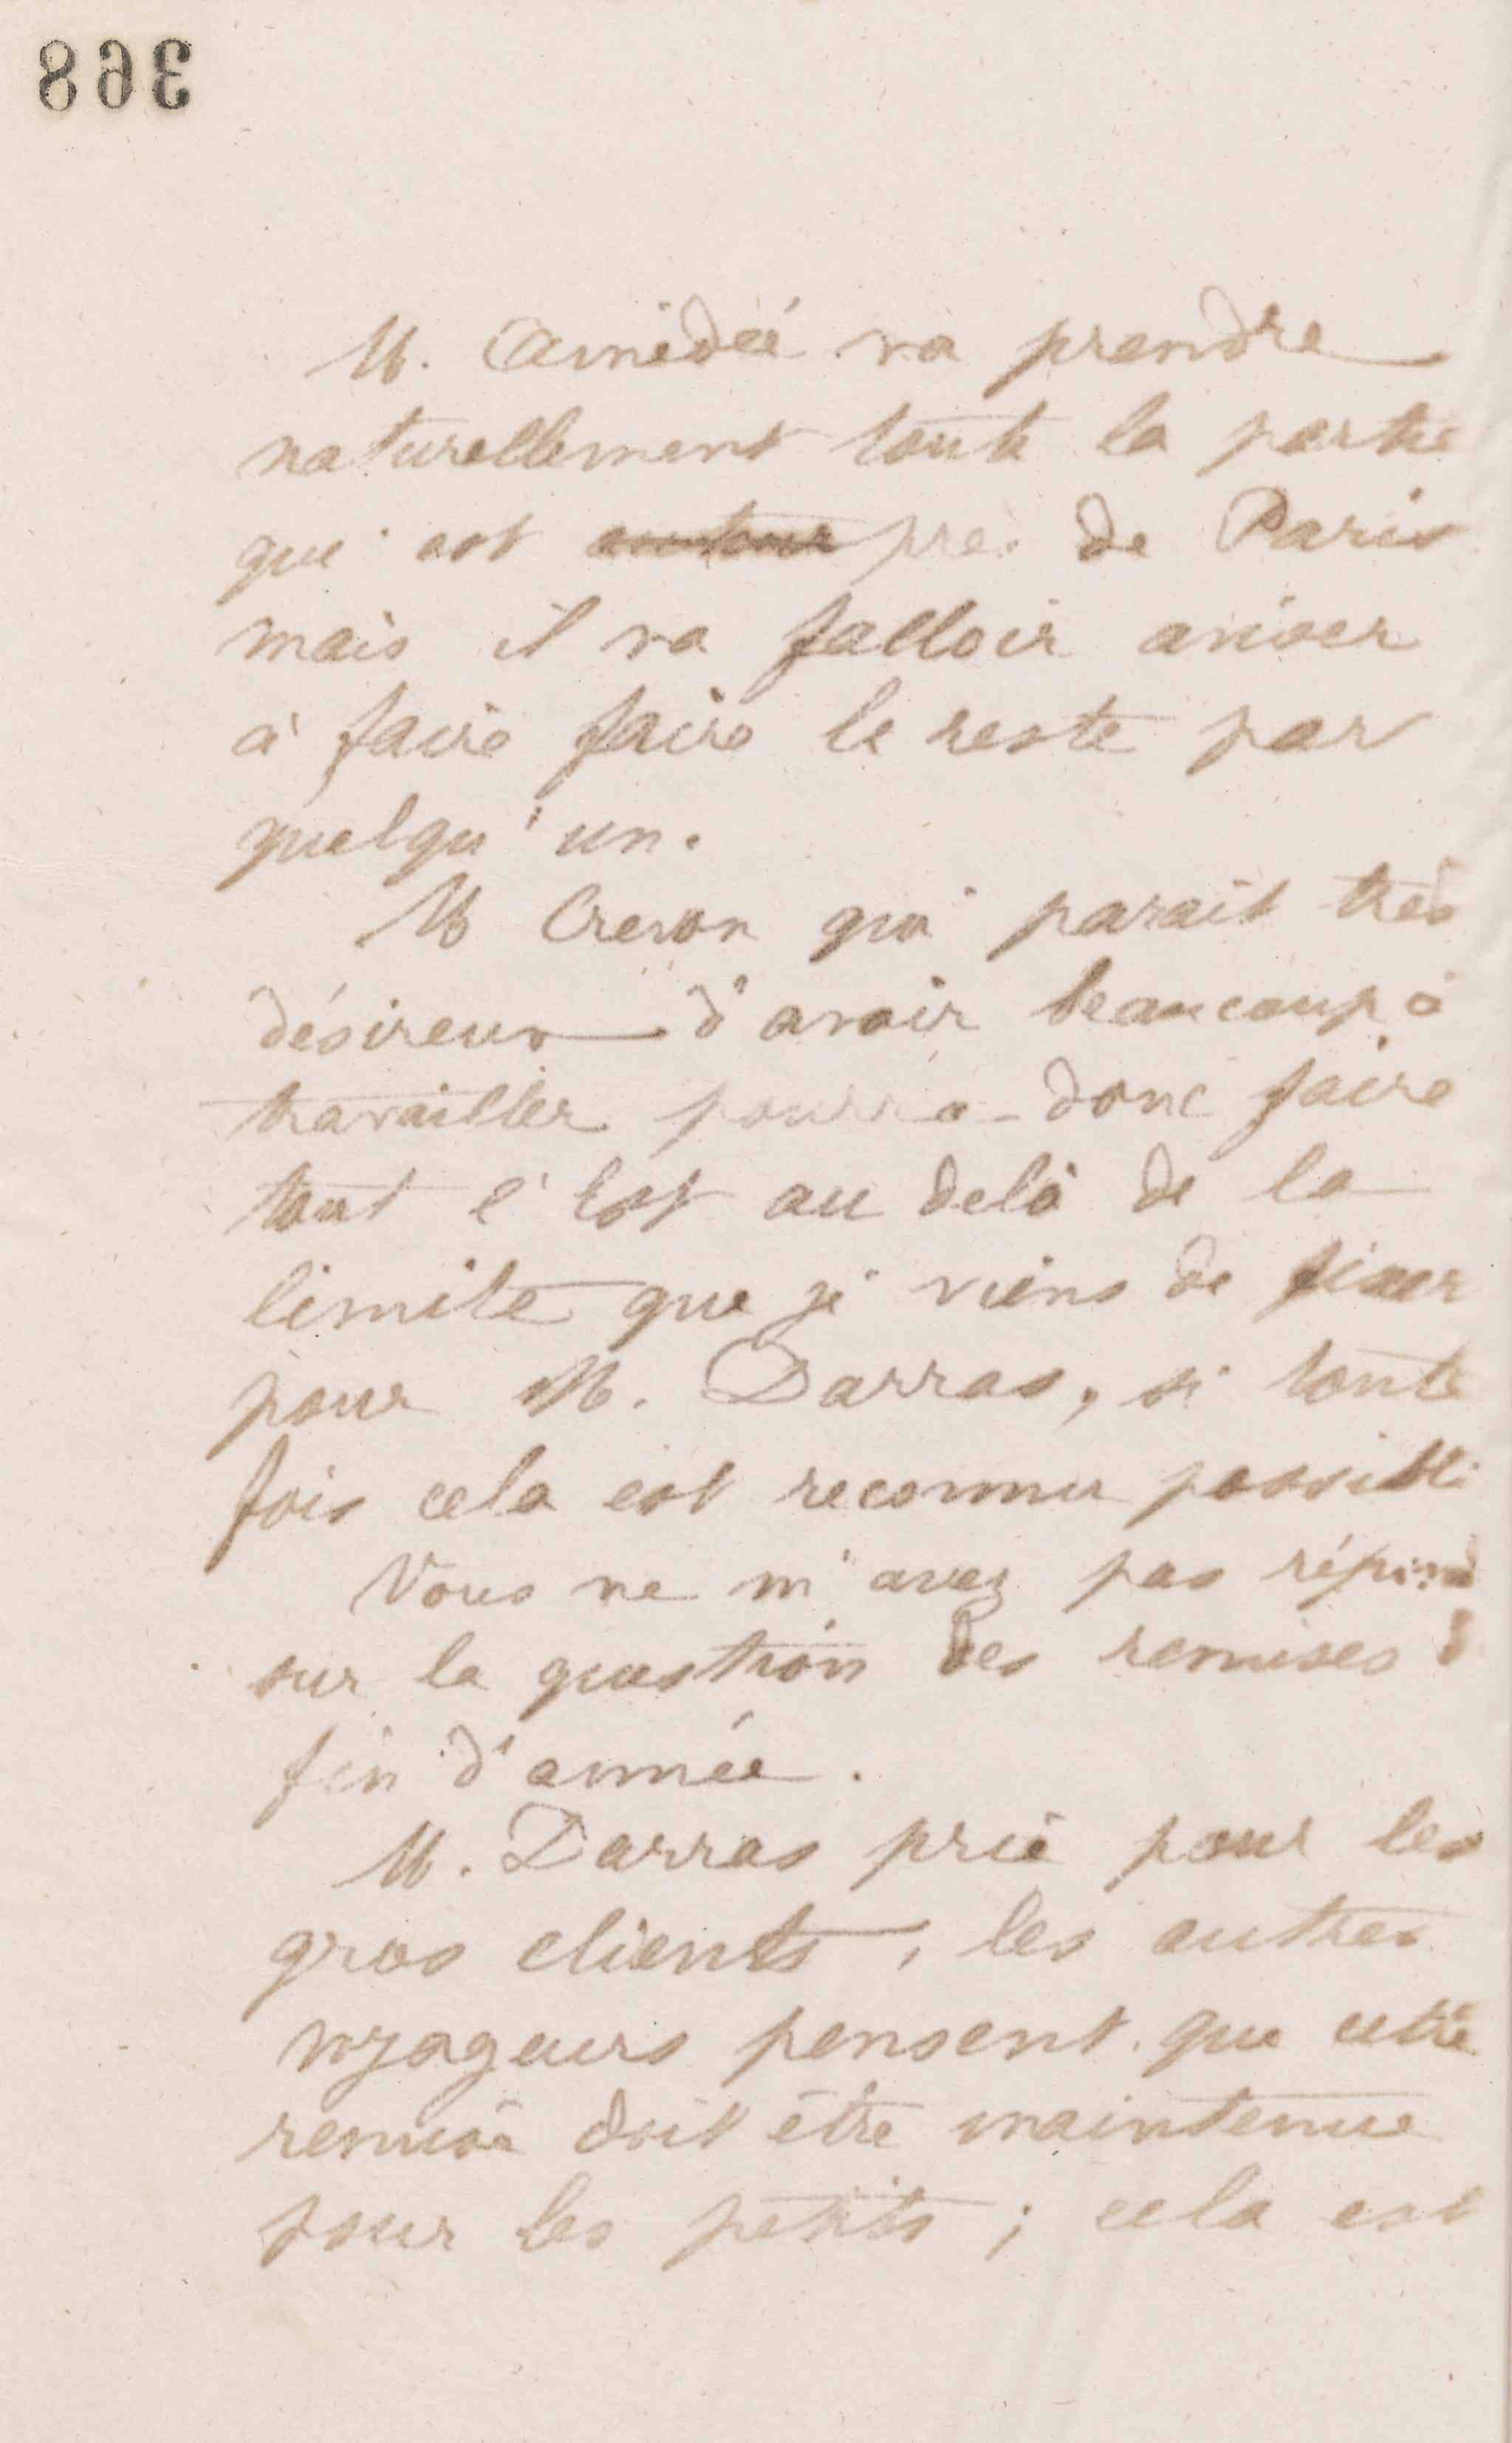 368
M. Amédée va prendre
naturellement toute la partie
qui est autour près de Paris
mais il va falloir aviser
à faire faire le reste par
quelqu'un.
M Crevon qui parait très
désireux d'avoir beaucoup à
travailler pourra donc faire
tout l'Est au delà de la
limite que je viens de fixer
pour M. Darras, si toute
fois cela est reconnu possible
Vous ne m'avez pas répond
sur la question des remises
fin d'année.
M. Darras prie pour les
gros clients, les autres
voyageurs pensent que cette
remise doit être maintenue
pour les petits ; cela est